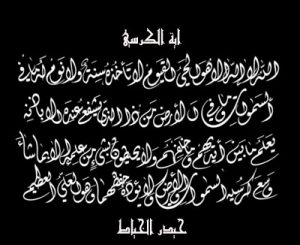 آية الكرسي
الله لا إله إلا هو الحي القيوم لا تأخذه سنة ولا نوم له ما في
السموات وما في الأرض من ذا الذي يشفع عنده إلا بإذنه
يعلم ما بين أيديهم وما خلفهم ولا يحيطون بشيء من علمه إلا بما شاء
وسع كرسيه السموات والأرض ولا يؤده حفظهما وهو العلي العظيم
حيدر الخياط